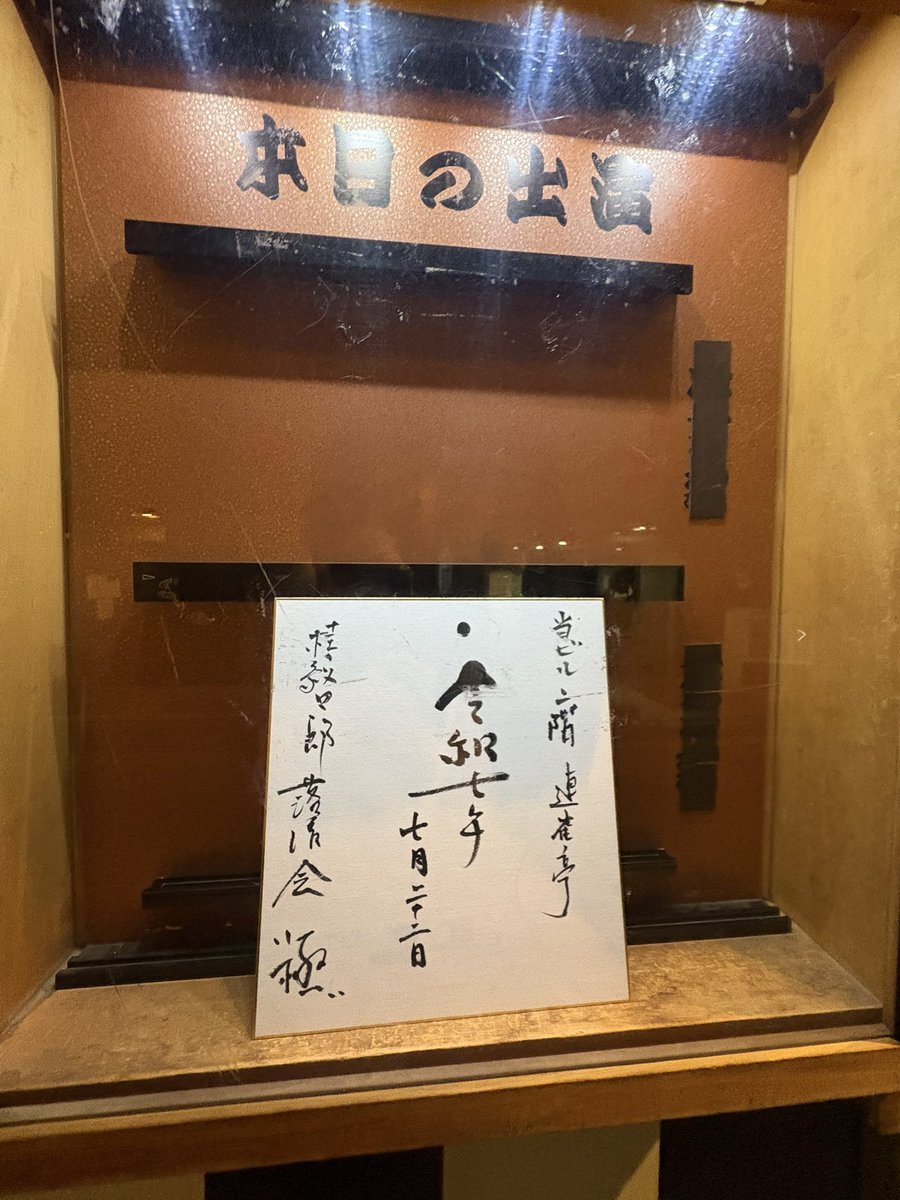 本日の出演
当ビル二階 連雀亭
令和七年
七月二十二日
桂智四郎 落語会 極